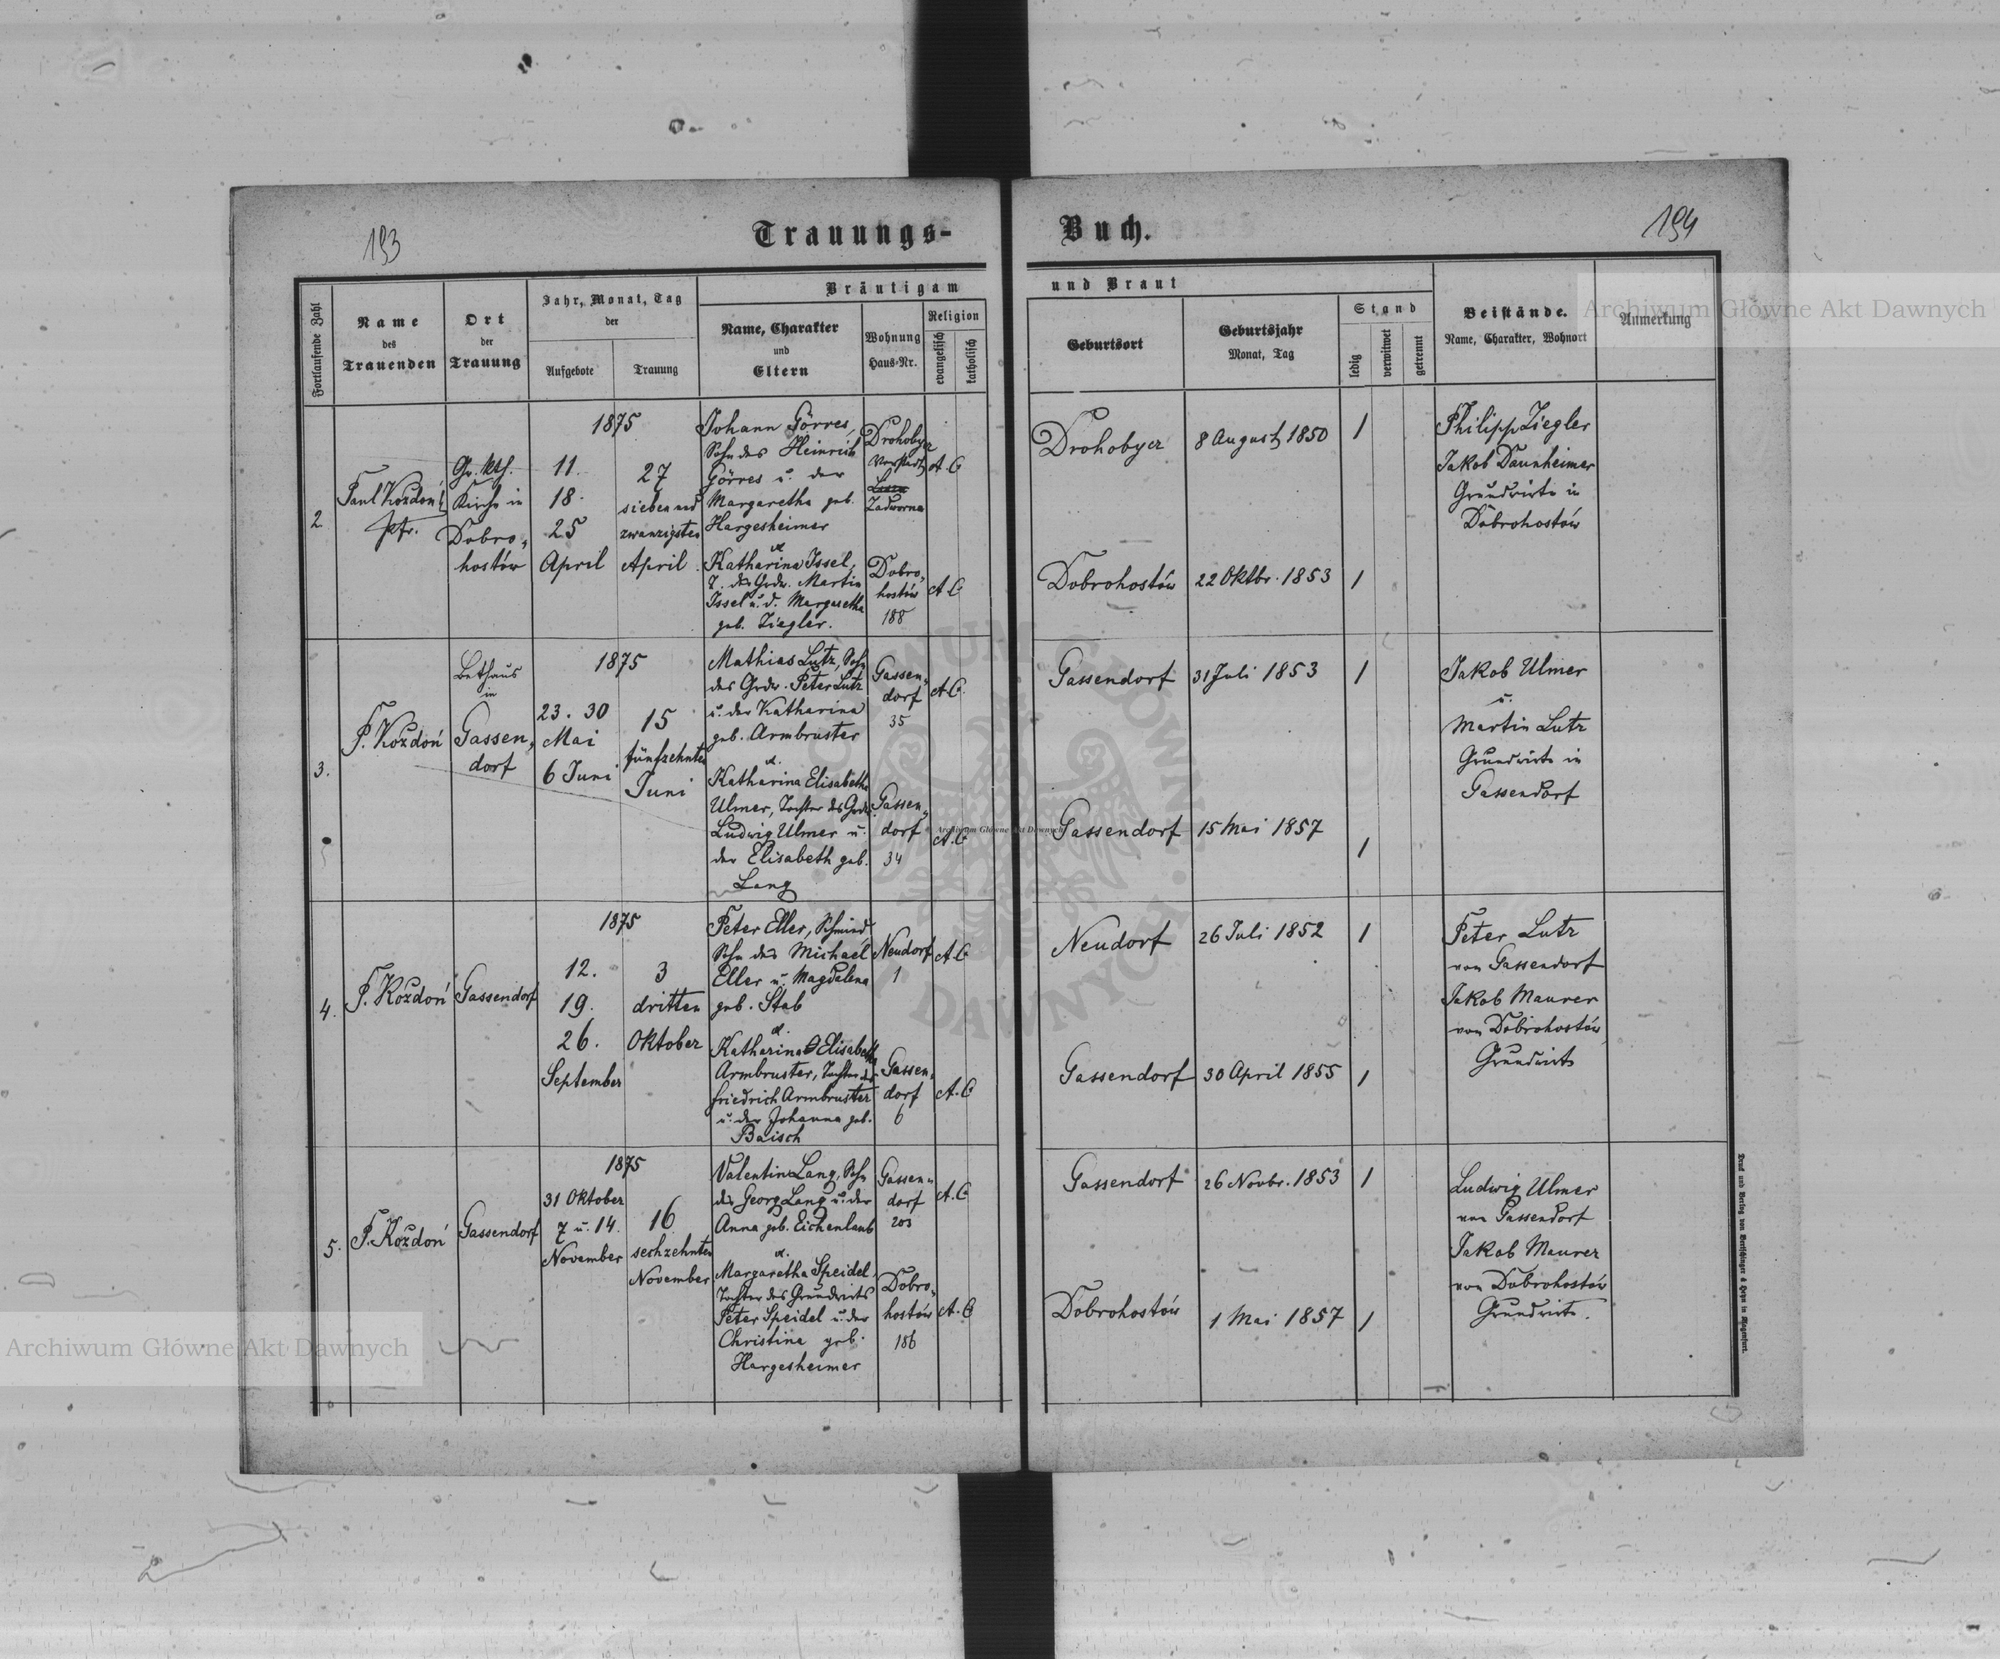 193
Trauungs-
Buch.
194
Fortlaufende Zahl
Name
des
Trauenden
Ort
der
Trauung
Jahr, Monat, Tag
der
Aufgebote
Trauung
Bräutigam
Name, Charakter
und
Eltern
Wohnung
Haus-Nr.
Religion
evangelisch
katholisch
und Braut
Geburtsort
Geburtsjahr
Monat, Tag
Stand
ledig
verwitwet
getrennt
Beistände.
Name, Charakter, Wohnort
Anmerkung
2
Paul Kozdoń
Pfr.
Gr. kth.
Kirche in
Dobro-
hostów
1875
11.
18.
25
April
27
sieben und
zwanzigsten
April
Johann Görres,
Sohn des Heinrich
Görres u. der
Margaretha geb.
Hargesheimer
u.
Katharina Issel,
T. des Grdw. Martin
Issel u. d. Margaretha
geb. Ziegler.
Drohobycz
Vorstadt
Zadworna
A. C
Dobro-
hostów
188
A C
Drohobycz
8 August 1850
1
Dobrohostów
22 Oktbr. 1853
1
Philipp Ziegler
Jakob Daunheimer
Grundwirte in
Dobrohostów
3.
P. Kozdoń
Bethaus
in
Gassen-
dorf
1875
23. 30
Mai
6 Juni
15
fünfzehnten
Juni
Mathias Lutz, Sohn
des Grdw. Peter Lutz
u. der Katharina
geb. Armbruster
u.
Katharina Elisabetha
Ulmer, Tochter des Grdw.
Ludwig Ulmer u.
der Elisabeth geb.
Lang
Gassen-
dorf
35
A C.
Gassen-
dorf
34
A. C
Gassendorf
31 Juli 1853
1
Gassendorf
15 Mai 1857
1
Jakob Ulmer
u.
Martin Lutz
Grundwirte in
Gassendorf
4.
P. Kozdoń
Gassendorf
1875
12.
19.
26.
September
3
dritten
Oktober
Peter Eller, Schmied
Sohn des Michael
Eller u. Magdalena
geb. Stab
u.
Katharina Elisabetha
Armbruster, Tochter des
Friedrich Armbruster
u. der Johanna geb.
Baisch
Neudorf
1
A C
Gassen-
dorf
6
A. C
Neudorf
26 Juli 1852
1
Gassendorf
30 April 1855
1
Peter Lutz
von Gassendorf
Jakob Maurer
von Dobrohostów
Grundwirte
5.
P. Kozdoń
Gassendorf
1875
31 Oktober
7 u. 14.
November
16
sechzehnten
November
Valentin Lang, Sohn
des Georg Lang u. der
Anna geb. Eichenlaub
u.
Margaretha Speidel,
Tochter des Grundwirts
Peter Speidel u. der
Christina geb.
Hargesheimer
Gassen-
dorf
203
A. C
Dobro-
hostów
186
A. C
Gassendorf
26 Novbr. 1853
1
Dobrohostów
1 Mai 1857
1
Ludwig Ulmer
von Gassendorf
Jakob Maurer
von Dobrohostów
Grundwirte.
Druck und Verlag von Bertschinger & Heyn in Klagenfurt.
Archiwum Główne Akt Dawnych
Archiwum Główne Akt Dawnych
Archiwum Główne Akt Dawnych